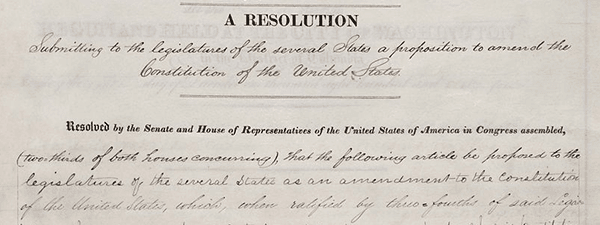 A RESOLUTION
Submitting to the legislatures of the several States a proposition to amend the
Constitution of the United States.
Resolved by the Senate and House of Representatives of the United States of America in Congress assembled,
(two-thirds of both houses concurring), that the following article be proposed to the
legislatures of the several States as an amendment to the Constitution
of the United States, which, when ratified by three-fourths of said